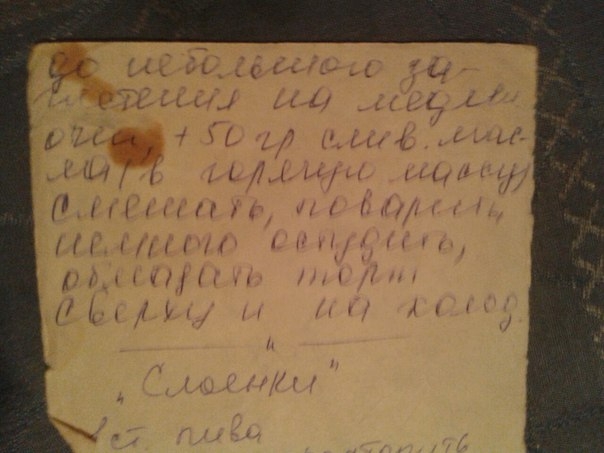 до небольшого за-
густения на медлен
огне, + 50 гр слив. мас-
ла (в горячую массу)
смешать, поварить,
немного остудить,
обмазать торт
сверху и на холод.
"
„Слоенки"
1 ст. пива